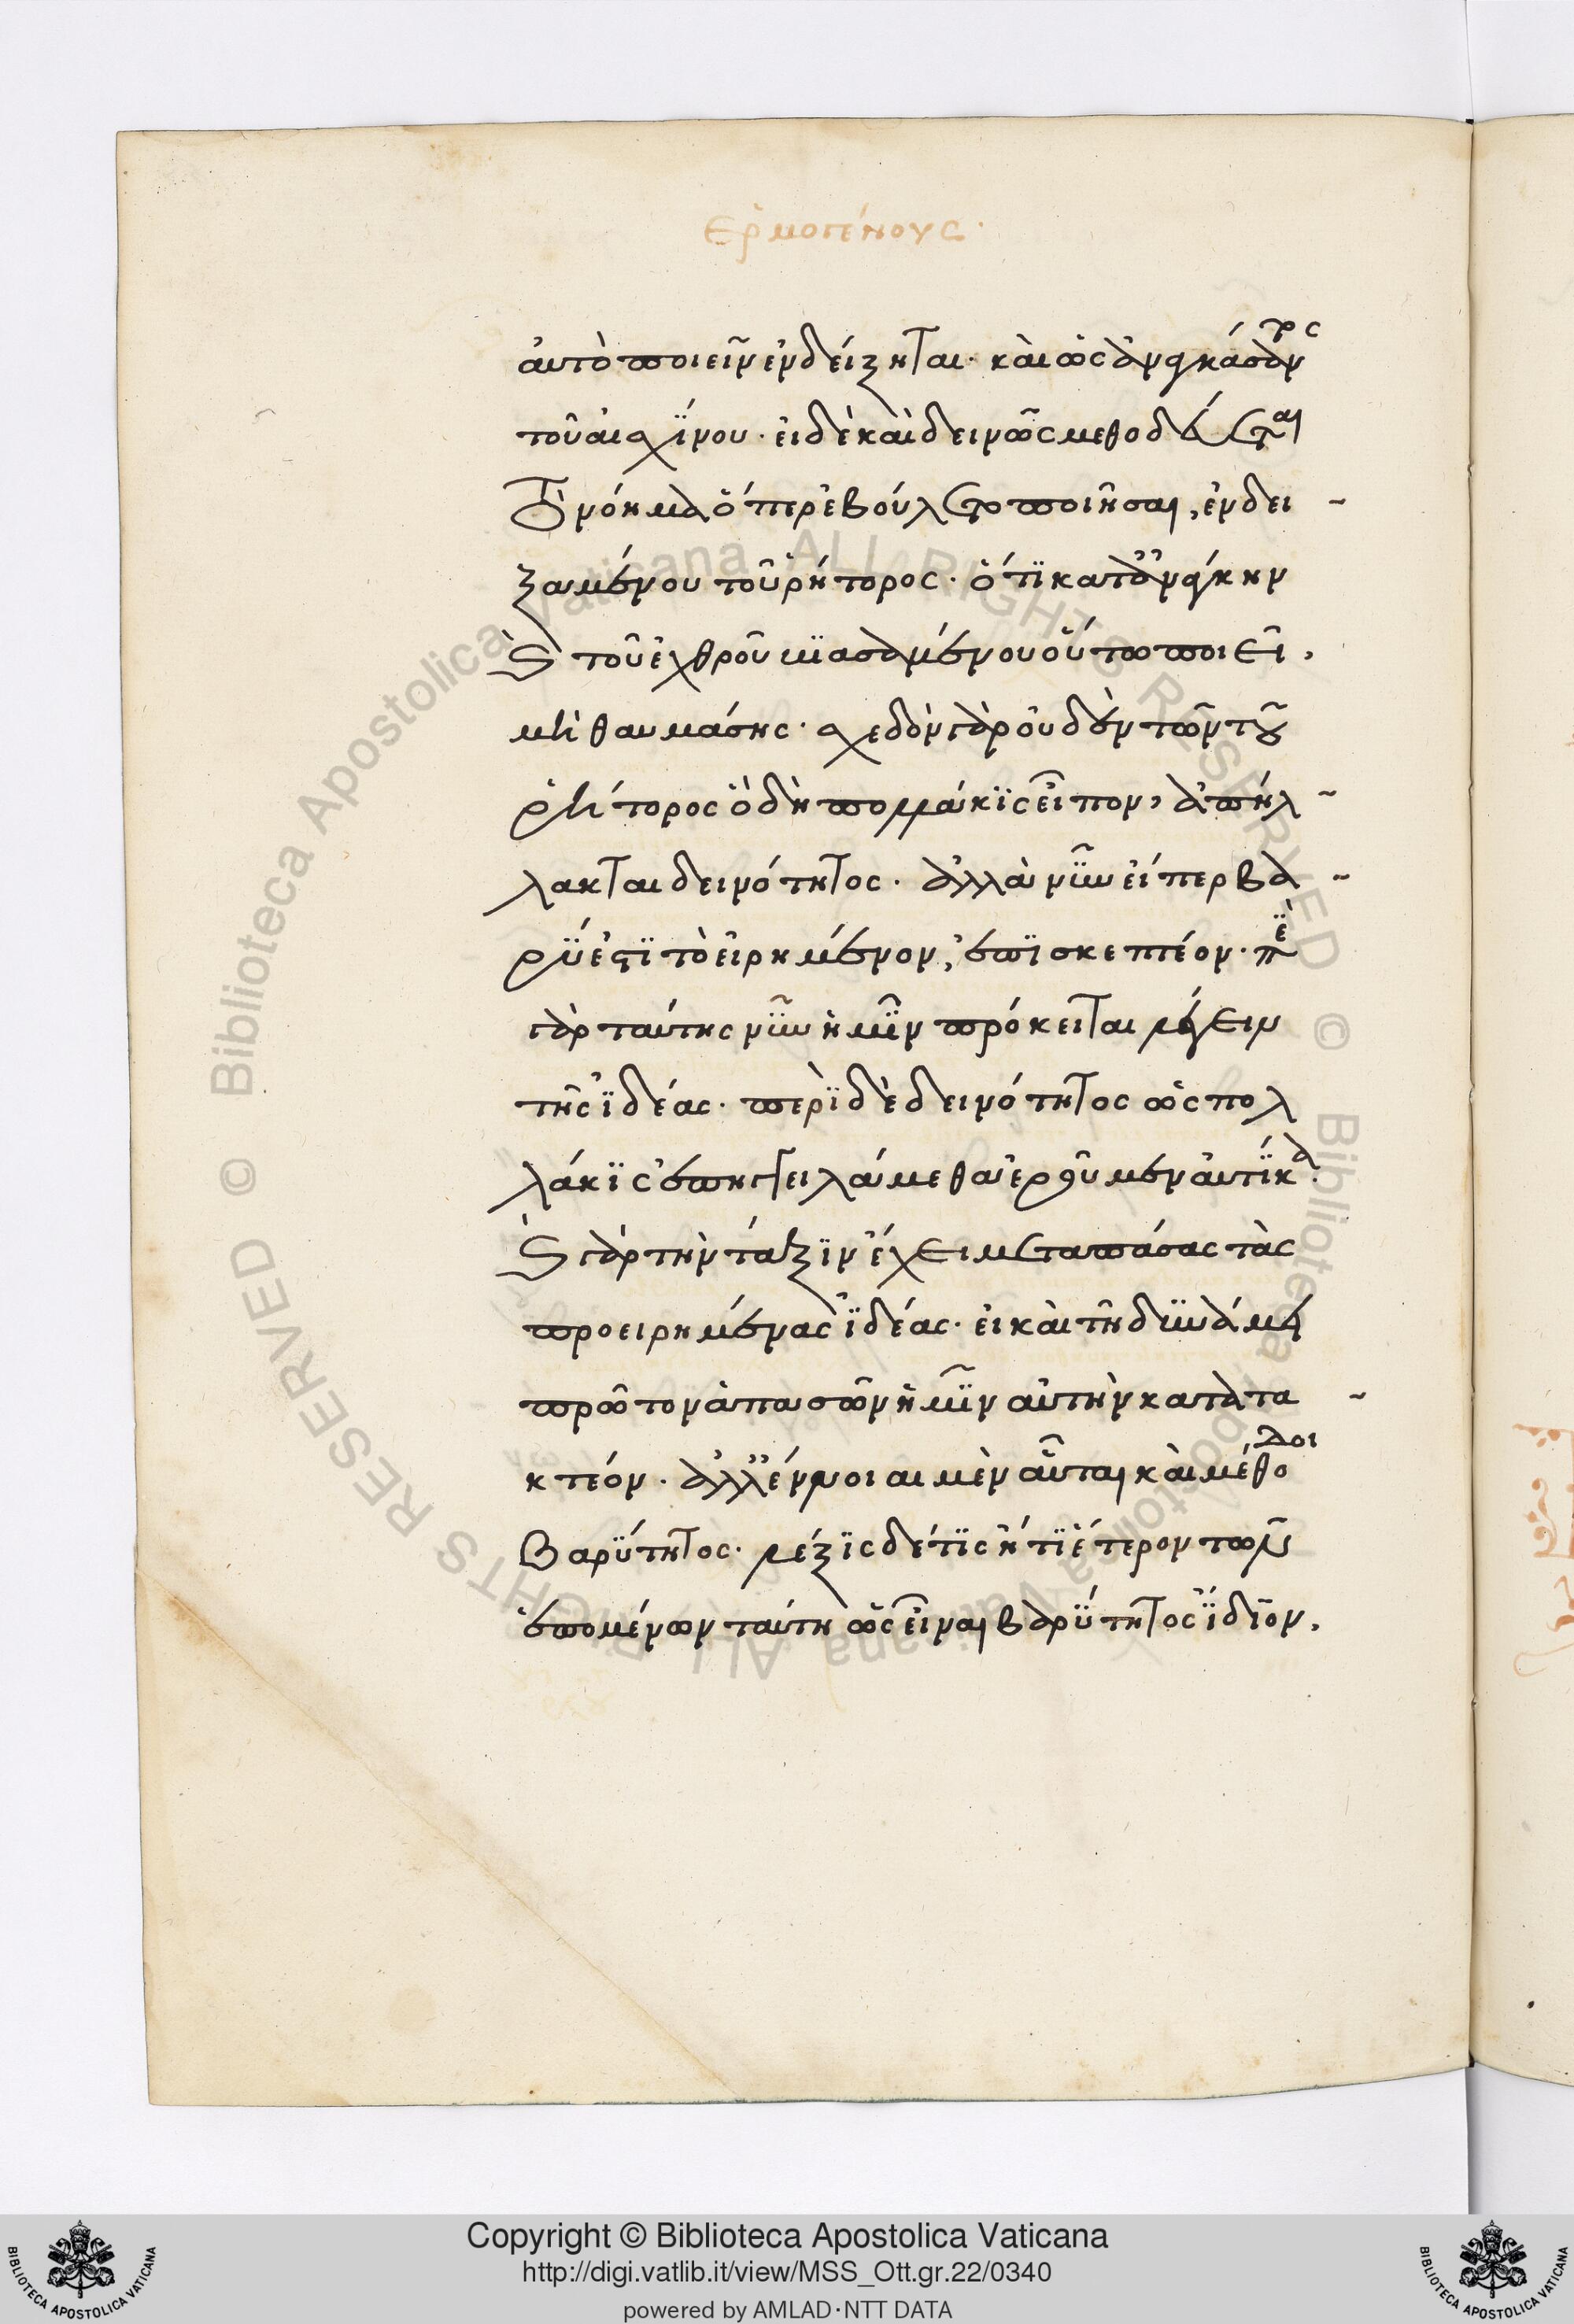 Ἑρμογένους·
αὐτὸ ποιεῖν ἐνδείξηται· καὶ ὡς ἀναγκάσαντος
τοῦ αἰσχίνου· εἰ δὲ καὶ δεινῶς μεθοδεύεται
τὸ νόημα ὅπερ ἐβούλετο ποιῆσαι, ἐνδει-
ξαμένου τοῦ ῥήτορος· ὅτι κατ' ἀνάγκην
καὶ τοῦ ἐχθροῦ βιασαμένου οὕτω ποιεῖ,
μὴ θαυμάσῃς· σχεδὸν γὰρ οὐδὲν τῶν τοῦ
ῥήτορος ὃ δὴ πολλάκις εἶπον, ἀπήλ-
λακται δεινότητος· ἀλλὰ νῦν εἴπερ βα-
ρύ ἐστι τὸ εἰρημένον, ἐπισκεπτέον· περὶ
γὰρ ταύτης νῦν ἡμῖν πρόκειται λέγειν
τῆς ἰδέας· περὶ δὲ δεινότητος ὡς πολ
λάκις ἐπηγγειλάμεθα ἐροῦμεν αὐτίκα·
καὶ γὰρ τὴν τάξιν ἔχει μετὰ πάσας τὰς
προειρημένας ἰδέας· εἰ καὶ τῇ δυνάμει
πρῶτον ἁπασῶν ἡμῖν αὐτὴν κατατα-
κτέον· ἀλλ' ἔννοιαι μὲν αὗται καὶ μέθοδοι
βαρύτητος· λέξις δέ τις ἤ τι ἕτερον τῶν
ἑπομένων ταύτῃ ὡς εἶναι βαρύτητος ἴδιον,
Copyright © Biblioteca Apostolica Vaticana
http://digi.vatlib.it/view/MSS_Ott.gr.22/0340
powered by AMLAD·NTT DATA